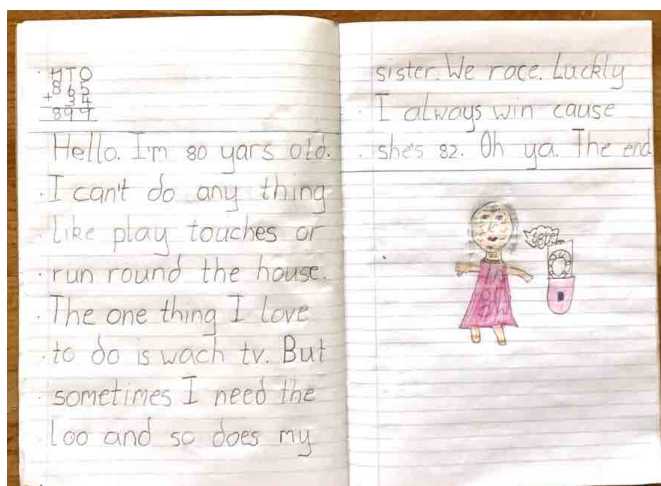 HTO
865
+ 34
899
Hello. I'm 80 yars old.
I can't do any thing
like play touches or
run round the house.
The one thing I love
to do is wach tv. But
sometimes I need the
loo and so does my
sister. We race. Luckly
I always win cause
she's 82. Oh ya. The end
I'm
80